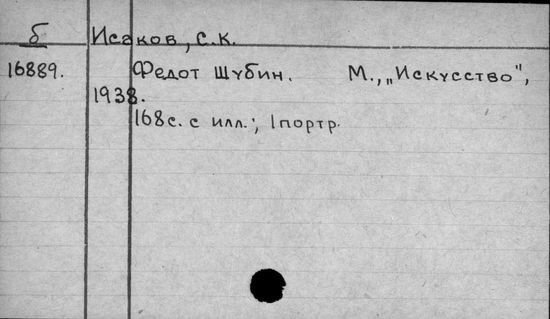 б Исаков, С.К.
16889. Федот Шубин. М., „Искусство",
1938.
168с. с илл.; 1портр.